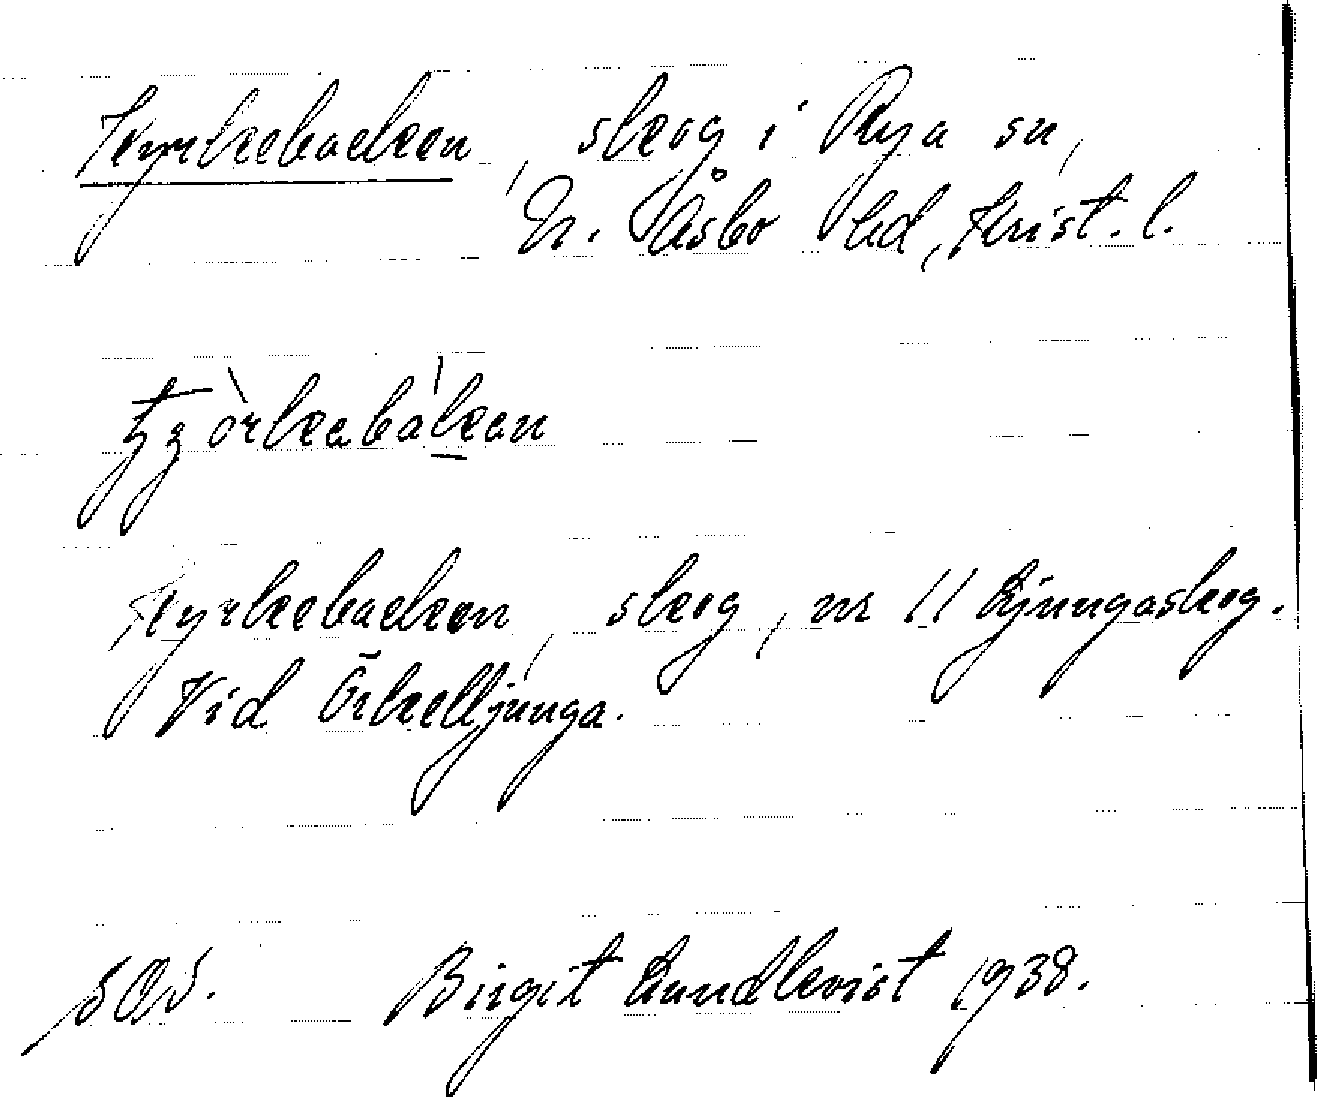 Kyrkebacken, skog i Rya sn,
N. Åsbo hd, Krist. l.
Kyrkebacken, skog, nr 11 Ljungaskog.
Vid Örkelljunga.
SOS. Birgit Lundkvist 1938.